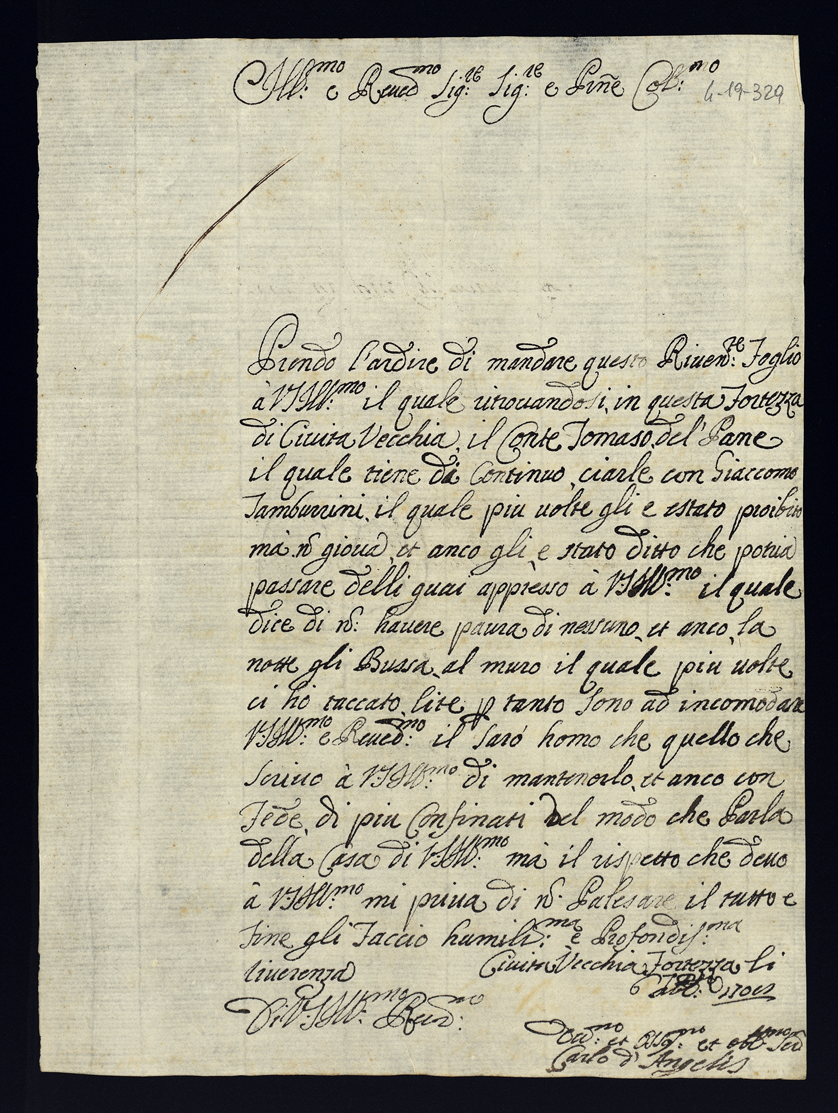 Ill:mo e Reued:mo Sig:re Sig:re e Prñe Col:mo
4-19-329
Prendo l'ardire di mandare questo Riuen:te Foglio
à VS Ill:mo il quale ritrouandosi in questa Fortezza
di Ciuita Vecchia, il Conte Tomaso del' Pane
il quale tiene di Continuo ciarle con Giaccomo
Tamburrini, il quale piu uolte gli e estato proibito
mà ñ gioua, et anco gli e stato ditto che potria
passare delli guai appresso à VS Ill:mo il quale
dice di ñ: hauere paura di nessuno, et anco la
notte gli Bussa al muro il quale piu uolte
ci hò taccato lite p tanto sono ad incomodare
VS Ill:mo e Reued:mo il sarò homo che quello che
scriuo à VS Ill:mo di mantenerlo, et anco con
Fede di piu Confinati del modo che Parla
della Casa di VS Ill:mo mà il rispetto che deuo
à VS Ill:mo mi priua di ñ: Palesare il tutto e
Fine gli Faccio humili:ma e Profondis:ma
riuerenza Ciuita Vecchia Fortezza li
6
Di VS Ill:mo Reud:mo
Deu:mo et Oss:mo et obl:mo Ser
Carlo d' Angelis